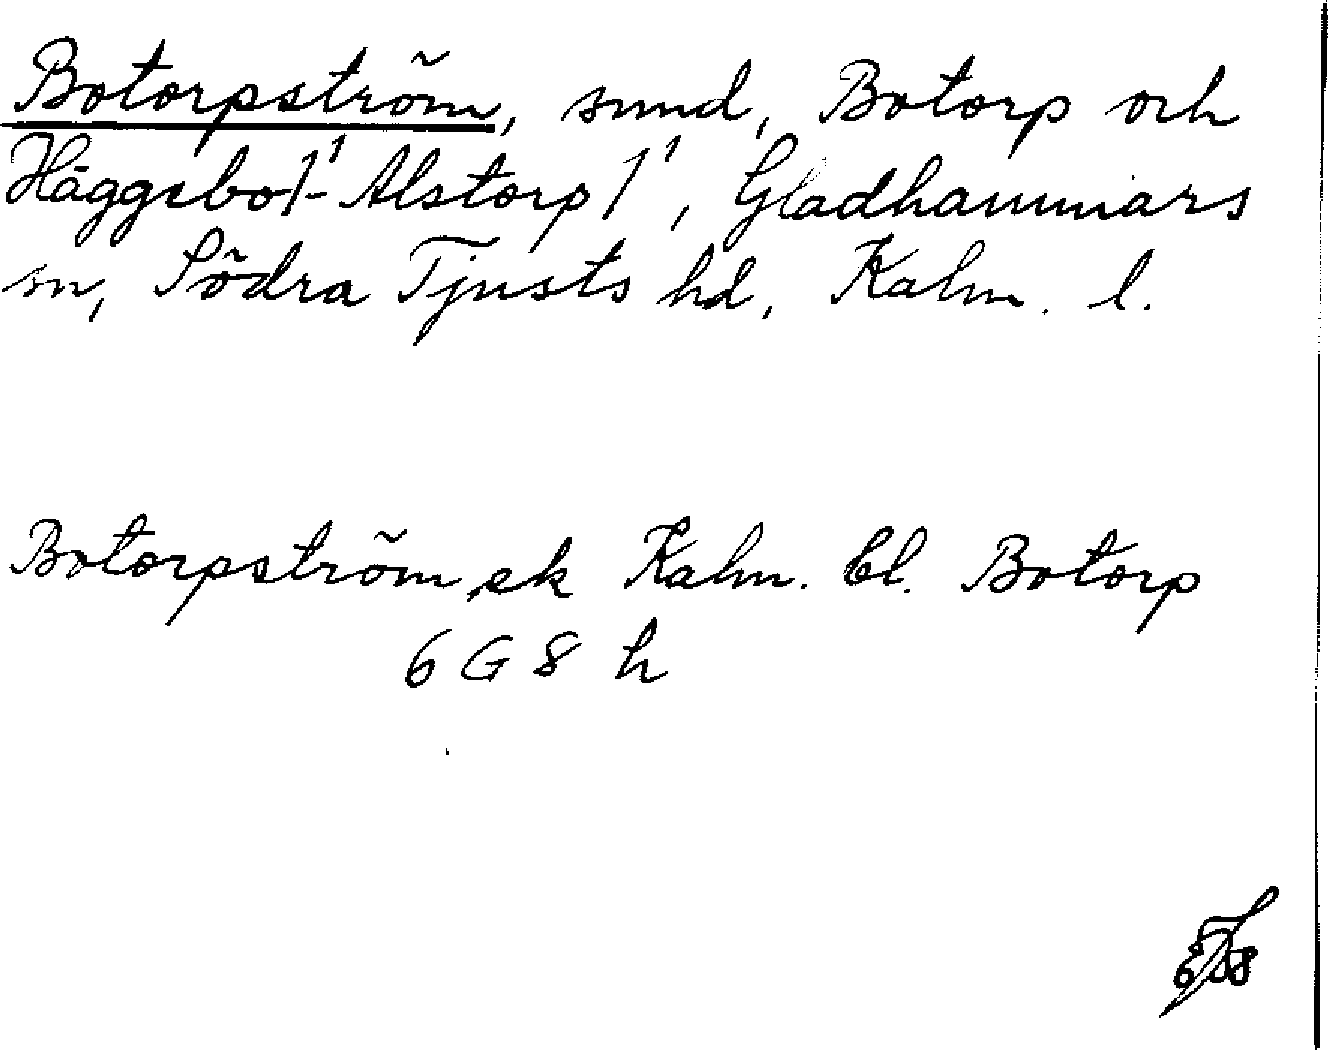 Botorpström, sund, Botorp och
Häggebo/1-Alstorp/1, Gladhammars
sn, Södra Tjusts hd, Kalm. l.
Botorpström, ek Kalm. bl. Botorp
6 G 8 h